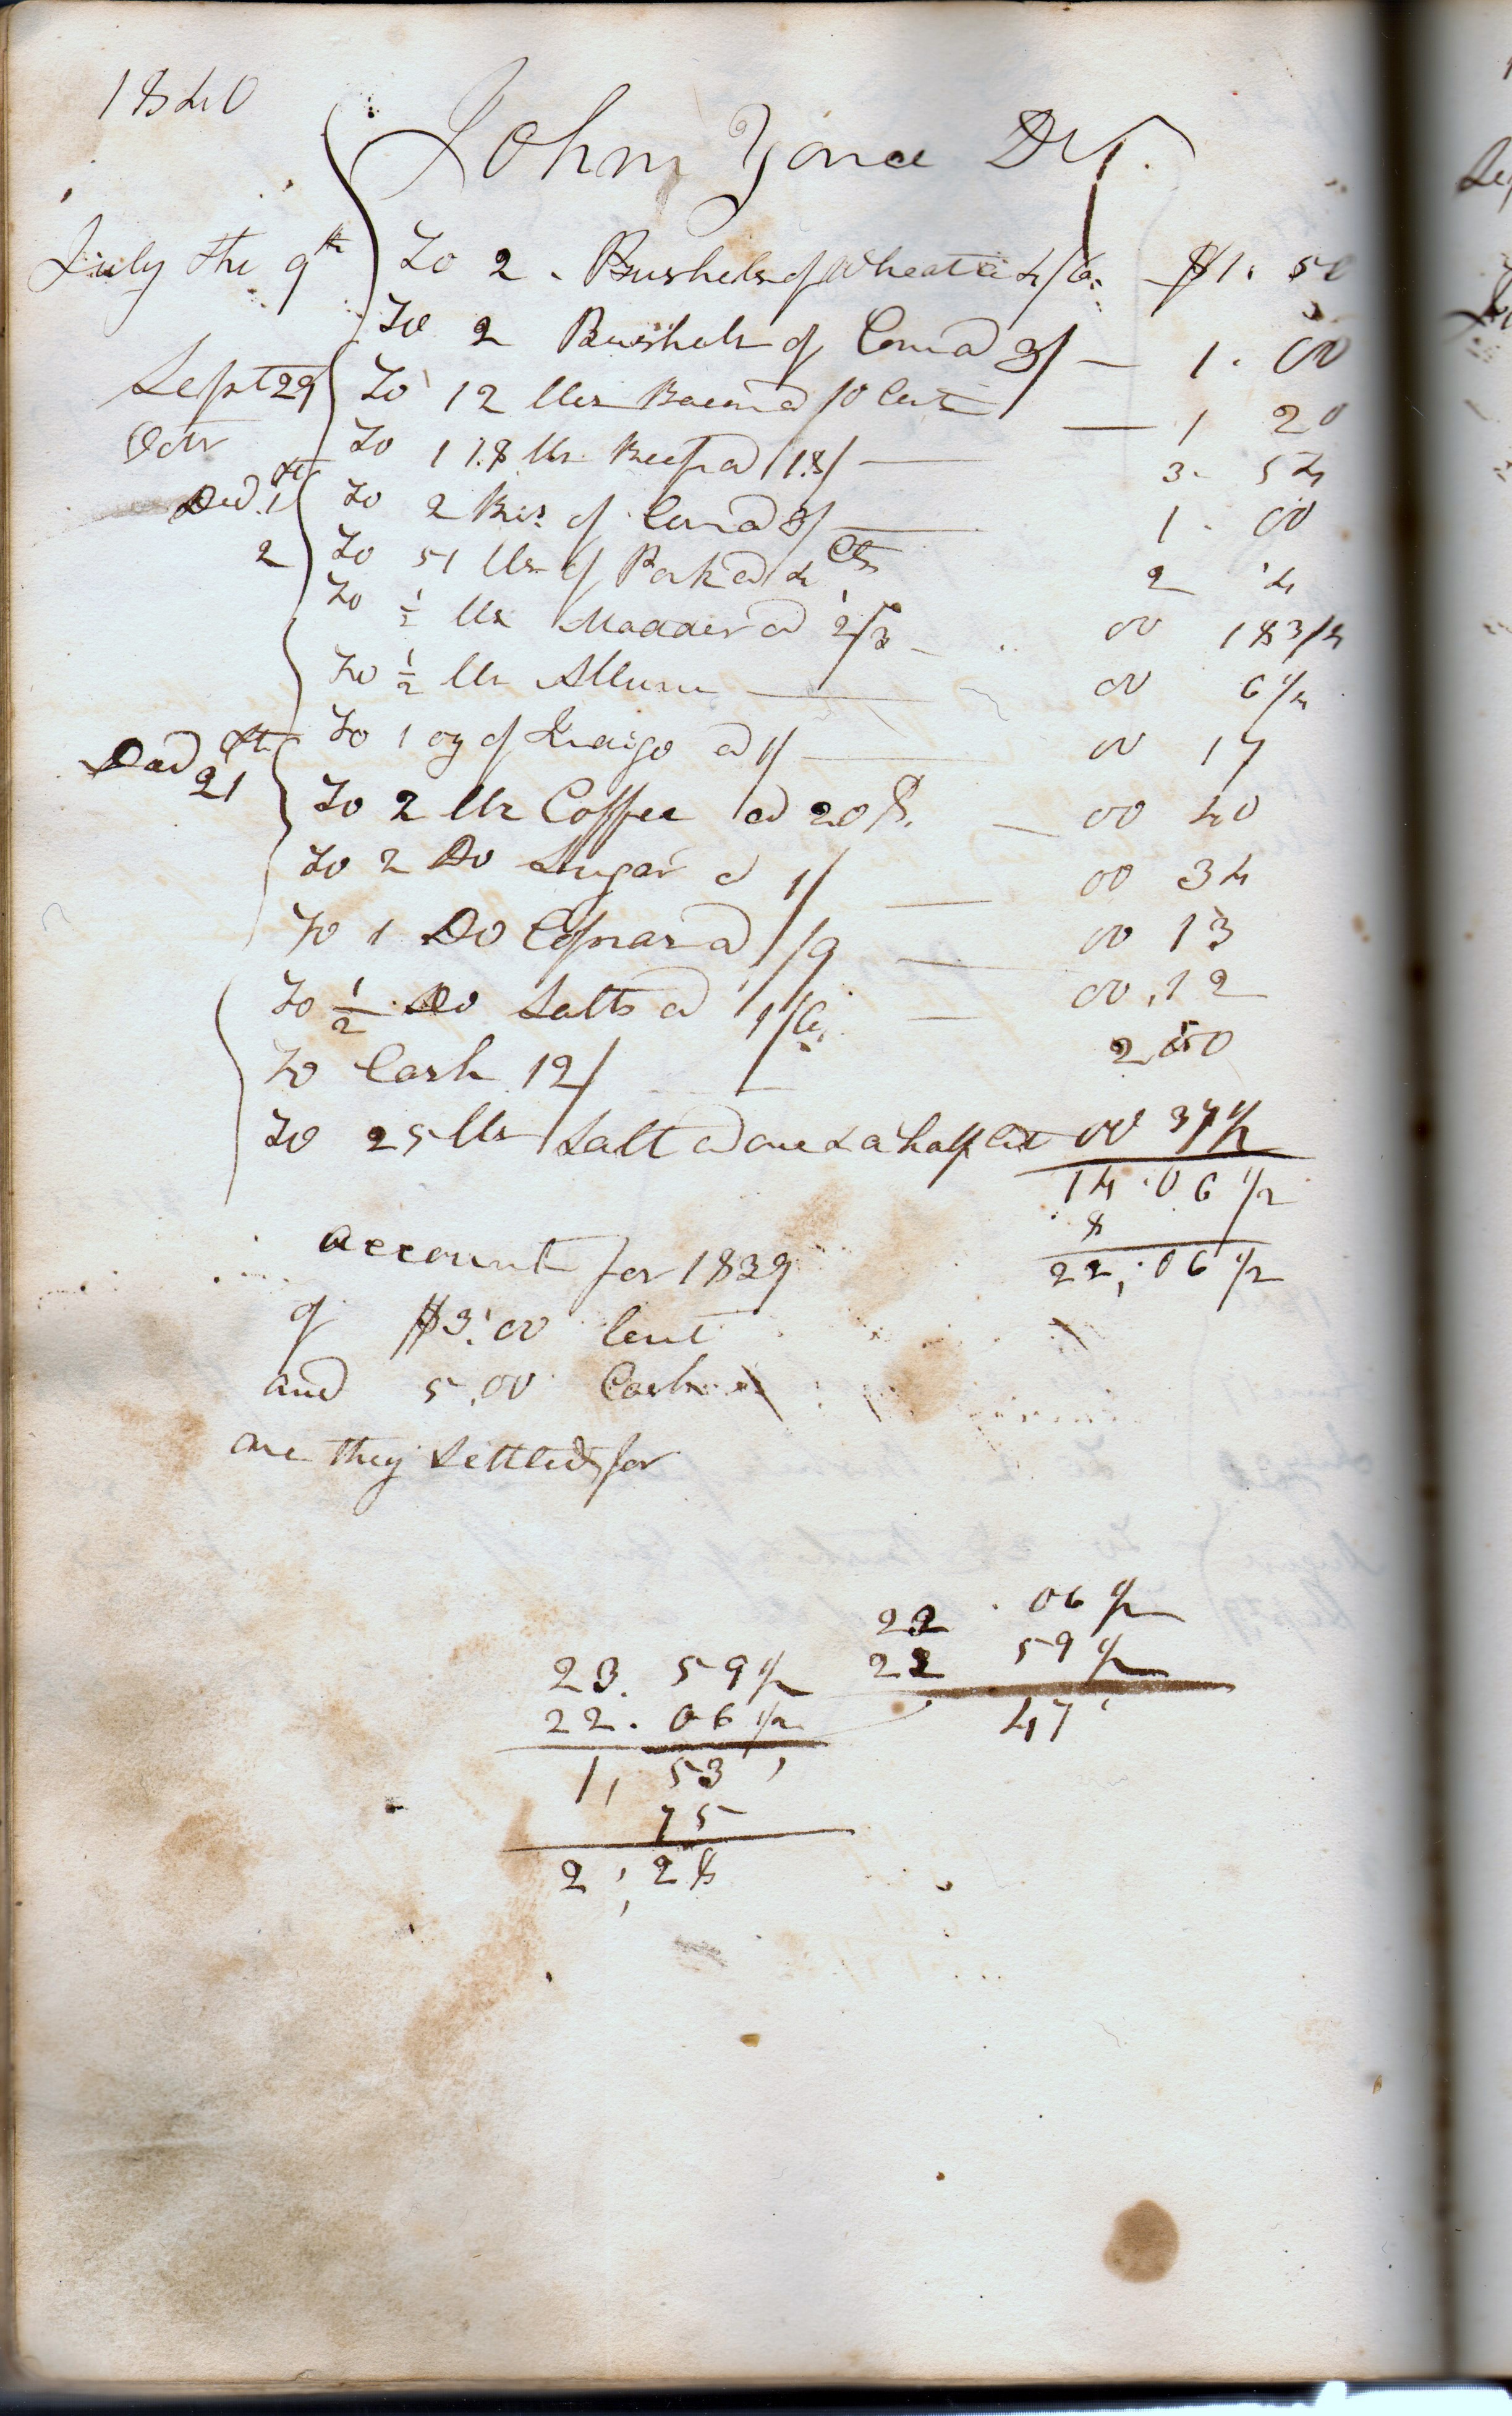 1840
John Yonce Dr
July the 9th To 2 Bushels of Wheat a 4/6 $1. 50
To 2 Bushels of Corn a 3/ — 1. 00
Sept 29 To 12 lbs Bacon a 10 Cent — 1 20
Octr To 118 lbs Beef a 18/ — 3. 54
Decd. 1st To 2 Bus. of Corn a 3/ — 1. 00
2 To 51 lbs of Pork a 4 Cts 2 4
To 1/2 lb Madder a 2/3 — 00 18 3/4
To 1/2 lb Allum — 00 6 1/4
To 1 oz of Indigo a 1/ — 00 17
Decd 21st To 2 lbs Coffee a 20 — 00 40
To 2 Do Sugar a 1/ — 00 34
To 1 Do Copras a /9 — 00 13
To 1/2 Do Salts a 1/6 — 00.12
To Cash 12/ — 2.00
To 25 lbs Salt a one & a half Cent 00 37 1/2
14.06 1/2
8
22,.06 1/2
account for 1839
of $3.00 lent
and 5.00 Cash
are they Settled for
22 . 06 1/2
22 59 1/2
47
23. 59 1/2
22. 06 1/2
1, 53
75
2, 28